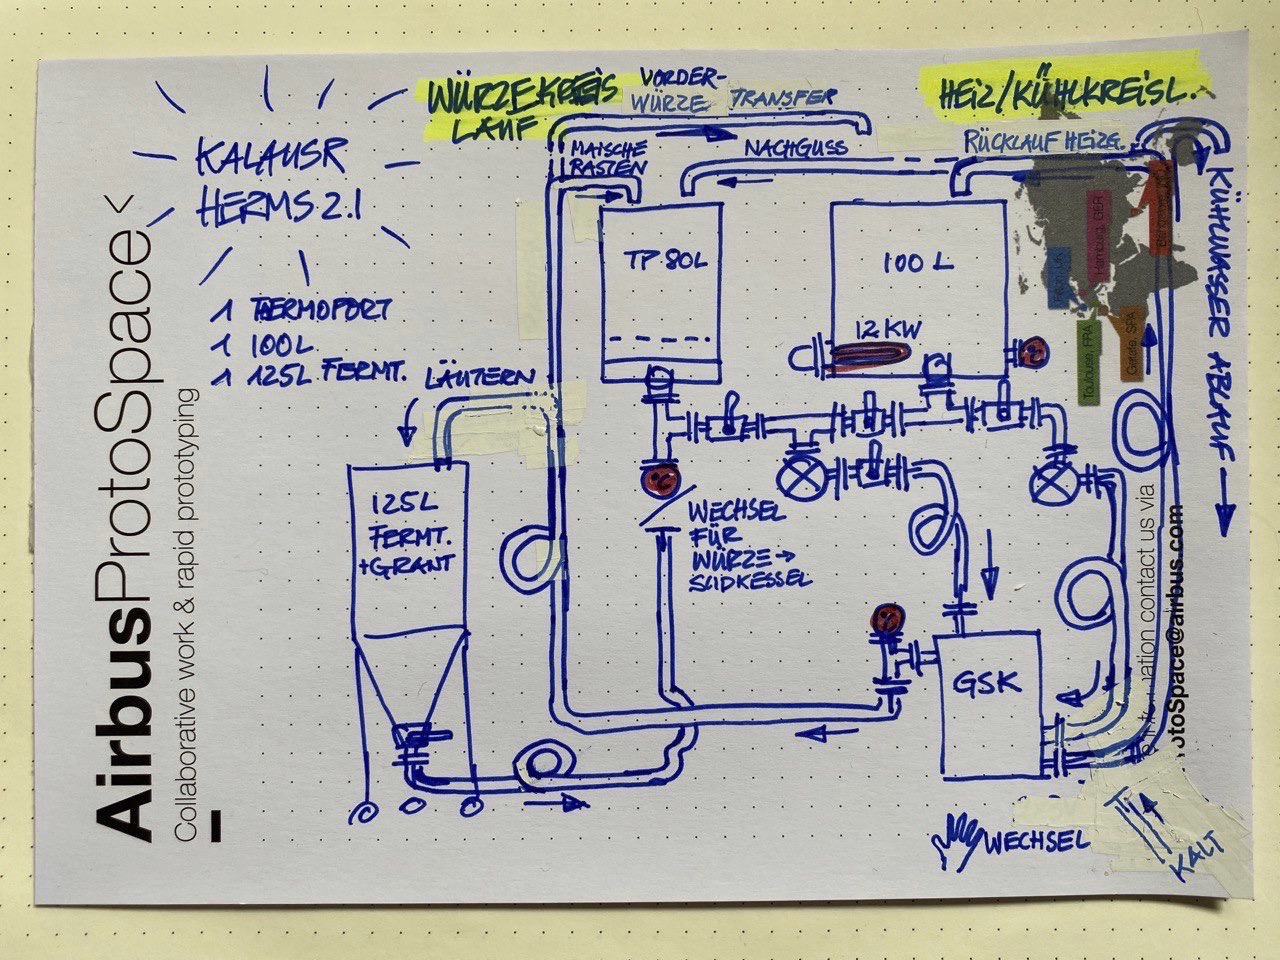 AirbusProtoSpace <
Collaborative work & rapid prototyping
KALAUSR
HERMS 2.1
1 THERMOPORT
1 100L
1 125L FERMT.
WÜRZEKREIS
LAUF
VORDER-
WÜRZE TRANSFER
HEIZ/KÜHLKREISL.
MAISCHE
RASTEN
NACHGUSS
RÜCKLAUF HEIZG.
KÜHLWASSER ABLAUF →
TP 80L
100 L
12 KW
°C
LÄUTERN
125L
FERMT.
+GRANT
°C
WECHSEL
FÜR
WÜRZE →
SUDKESSEL
°C
GSK
WECHSEL
KALT
Hamburg, GER
Toulouse, FRA
Getafe, SPA
ation contact us via
otoSpace@airbus.com